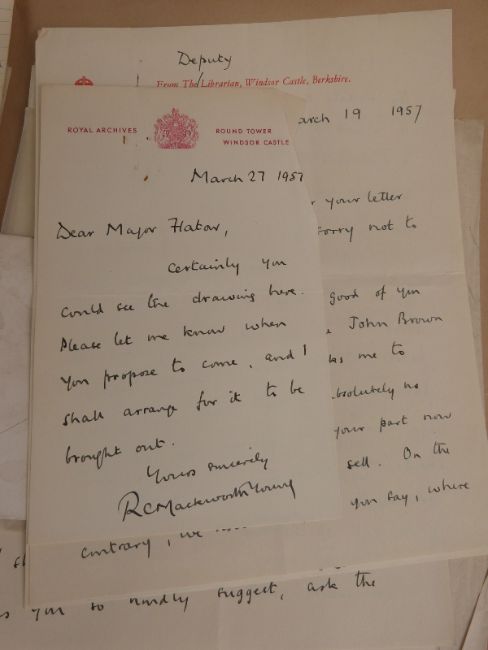 Deputy
From The Librarian, Windsor Castle, Berkshire.
arch 19 1957
ROYAL ARCHIVES
ROUND TOWER
WINDSOR CASTLE
March 27 1957
Dear Major
Certainly you
could see the drawing here.
Please let me know when
you propose to come, and I
shall arrange for it to be
brought out.
Yours sincerely
RCMackworth-Young
your letter
sorry not to
good of you
John Brown
me to
absolutely no
your part now
sell. On the
you say, where
contrary, we
you so kindly suggest, ask the